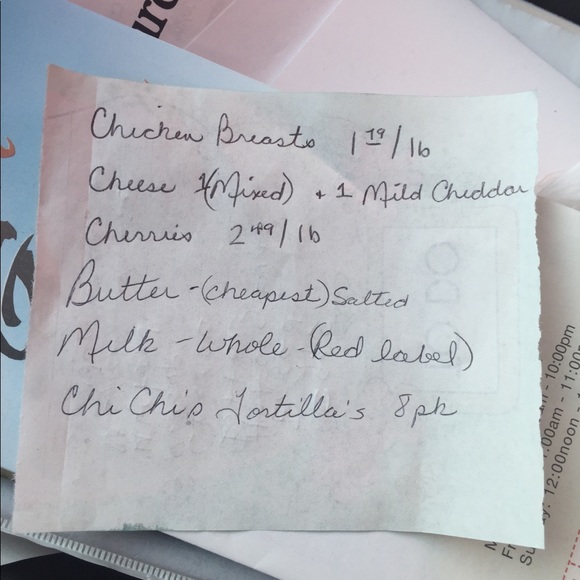 Chicken Breasts 1 19/lb
Cheese 1(Mixed) + 1 Mild Cheddar
Cherries 2 49/lb
Butter - (cheapest) Salted
Milk - whole - (Red label)
Chi Chi's Tortilla's 8pk
- 10:00pm
00am - 11:00p
12:00noon -